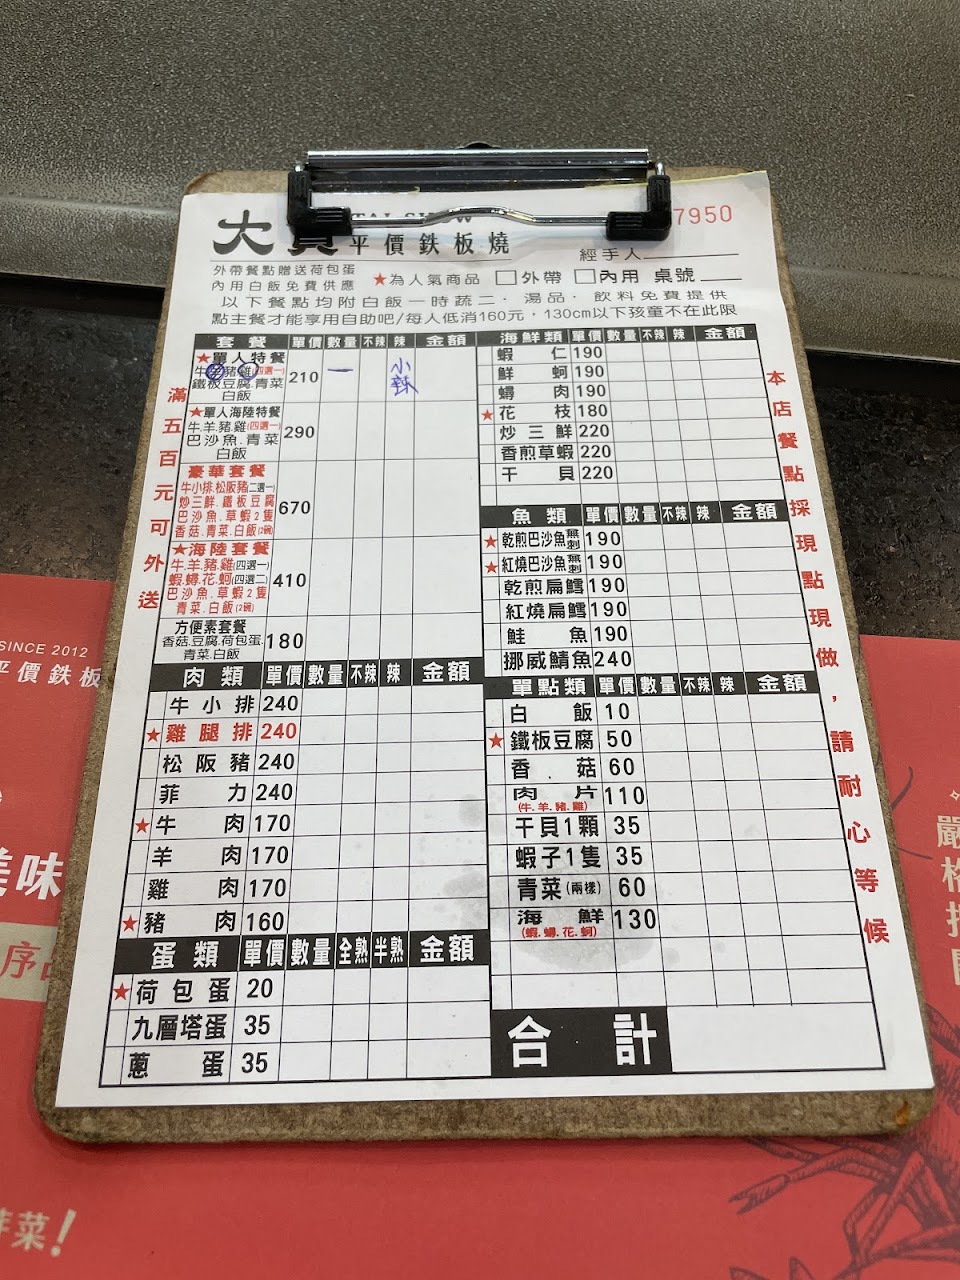 7950
平價鉄板燒
經手人
外帶餐點贈送荷包蛋
內用白飯免費供應
★為人氣商品 □外帶 □內用 桌號
以下餐點均附白飯一時蔬二．湯品．飲料免費提供
點主餐才能享用自助吧/每人低消160元．130cm以下孩童不在此限
滿五百元可外送
套餐 單價 數量 不辣 辣 金額
★單人特餐
牛羊豬雞(四選一)
鐵板豆腐.青菜
白飯
210 一 小辣
★單人海陸特餐
牛.羊.豬.雞(四選一)
巴沙魚.青菜
白飯
290
豪華套餐
牛小排.松阪豬(二選一)
炒三鮮.鐵板豆腐
巴沙魚.草蝦2隻
香菇.青菜.白飯(2碗)
670
★海陸套餐
牛.羊.豬.雞(四選一)
蝦.蟳.花.蚵(四選二)
巴沙魚.草蝦2隻
青菜.白飯(2碗)
410
方便素套餐
香菇.豆腐.荷包蛋.
青菜.白飯
180
肉類 單價 數量 不辣 辣 金額
牛小排 240
★雞腿排 240
松阪豬 240
菲力 240
★牛肉 170
羊肉 170
雞肉 170
★豬肉 160
蛋類 單價 數量 全熟 半熟 金額
★荷包蛋 20
九層塔蛋 35
蔥蛋 35
海鮮類 單價 數量 不辣 辣 金額
蝦仁 190
鮮蚵 190
蟳肉 190
★花枝 180
炒三鮮 220
香煎草蝦 220
干貝 220
魚類 單價 數量 不辣 辣 金額
★乾煎巴沙魚無刺 190
★紅燒巴沙魚無刺 190
乾煎扁鱈 190
紅燒扁鱈 190
鮭魚 190
挪威鯖魚 240
單點類 單價 數量 不辣 辣 金額
白飯 10
★鐵板豆腐 50
香菇 60
肉片 110
(牛.羊.豬.雞)
干貝1顆 35
蝦子1隻 35
青菜(兩樣) 60
海鮮 130
(蝦.蟳.花.蚵)
合計
本店餐點採現點現做，請耐心等候
SINCE 2012
平價鉄板
美味
序
菜！
嚴
格